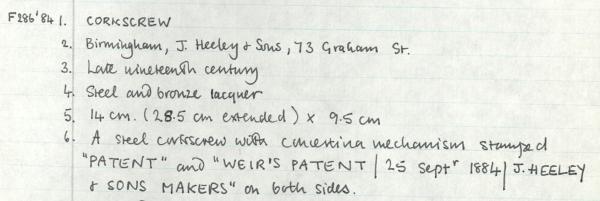 F286'84 1. CORKSCREW
2. Birmingham, J. Heeley & Sons, 73 Graham St.
3. Late nineteenth century
4. Steel and bronze lacquer
5. 14 cm. (28.5 cm extended) x 9.5 cm
6. A steel corkscrew with concertina mechanism stamped
"PATENT" and "WEIR'S PATENT | 25 Septr 1884 | J. HEELEY
& SONS MAKERS" on both sides.